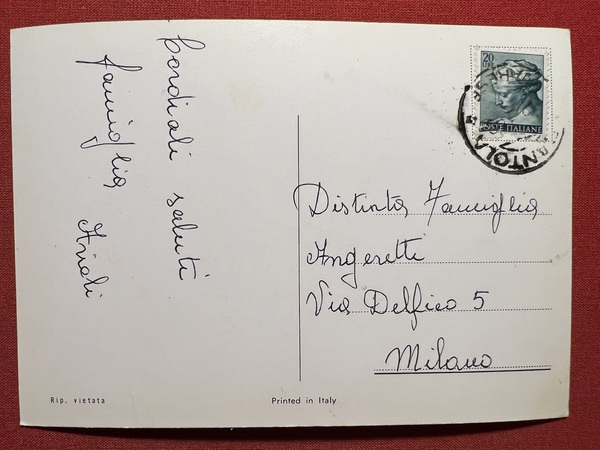 Cordiali saluti
famiglia
20
POSTE ITALIANE
Distinta Famiglia
Angeretti
Via Delfico 5
Milano
Rip. vietata
Printed in Italy